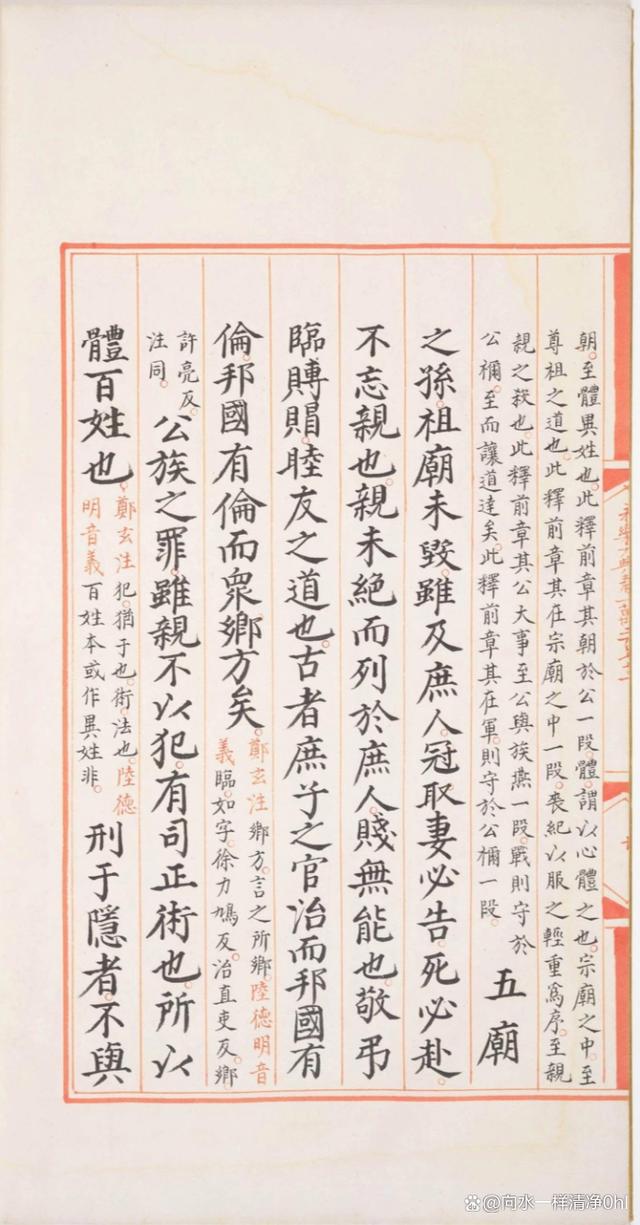 朝至體異姓也此釋前章其朝於公一段體謂以心體之也宗廟之中至
尊祖之道也此釋前章其在宗廟之中一段喪紀以服之輕重爲序至親
親之殺也此釋前章其公大事至公與族燕一段戰則守於
公禰至而讓道達矣此釋前章其在軍則守於公禰一段
五廟
之孫祖廟未毀雖及庶人冠取妻必告死必赴
不忘親也親未絕而列於庶人賤無能也敬弔
臨賻賵睦友之道也古者庶子之官治而邦國有
倫邦國有倫而衆鄉方矣
鄭玄注鄉方言之所鄉陸德明音
義臨如字徐力鴆反治直吏反鄉
許亮反
注同
公族之罪雖親不以犯有司正術也所以
體百姓也
鄭玄注犯猶干也術法也陸德
明音義百姓本或作異姓非
刑于隱者不與
@向水一样清净0hl